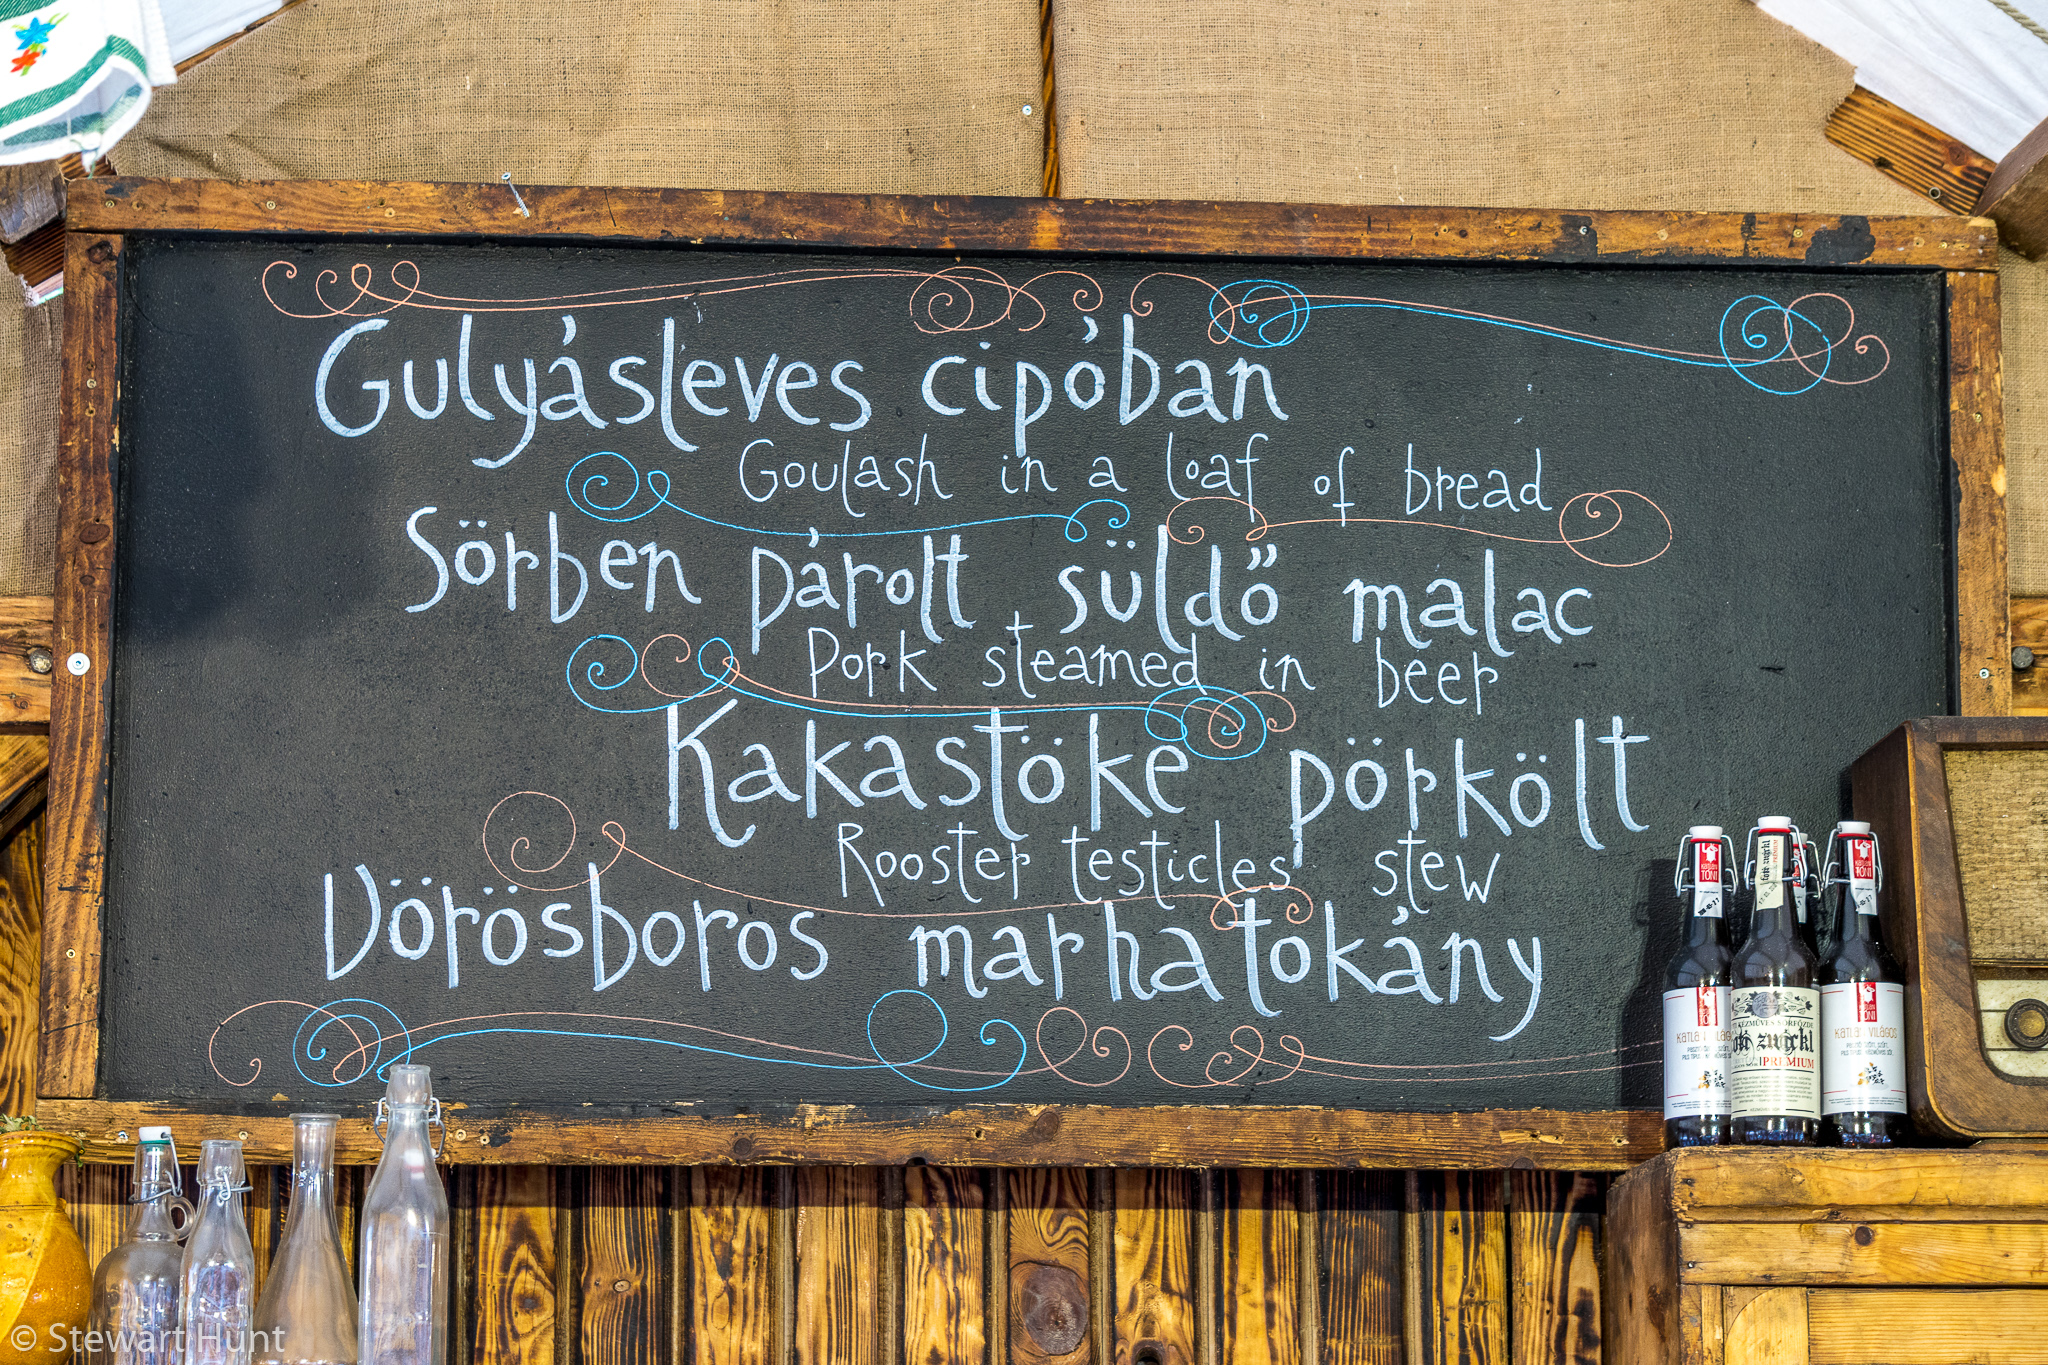 Gulyásleves cipóban
Goulash in a loaf of bread
Sörben párolt süldő malac
Pork steamed in beer
Kakastöke pörkölt
Rooster testicles stew
Vörösboros marhatokány
TÓNI
TÓNI
KATLAN VILÁGOS
zwickl
PREMIUM
© Stewart Hunt